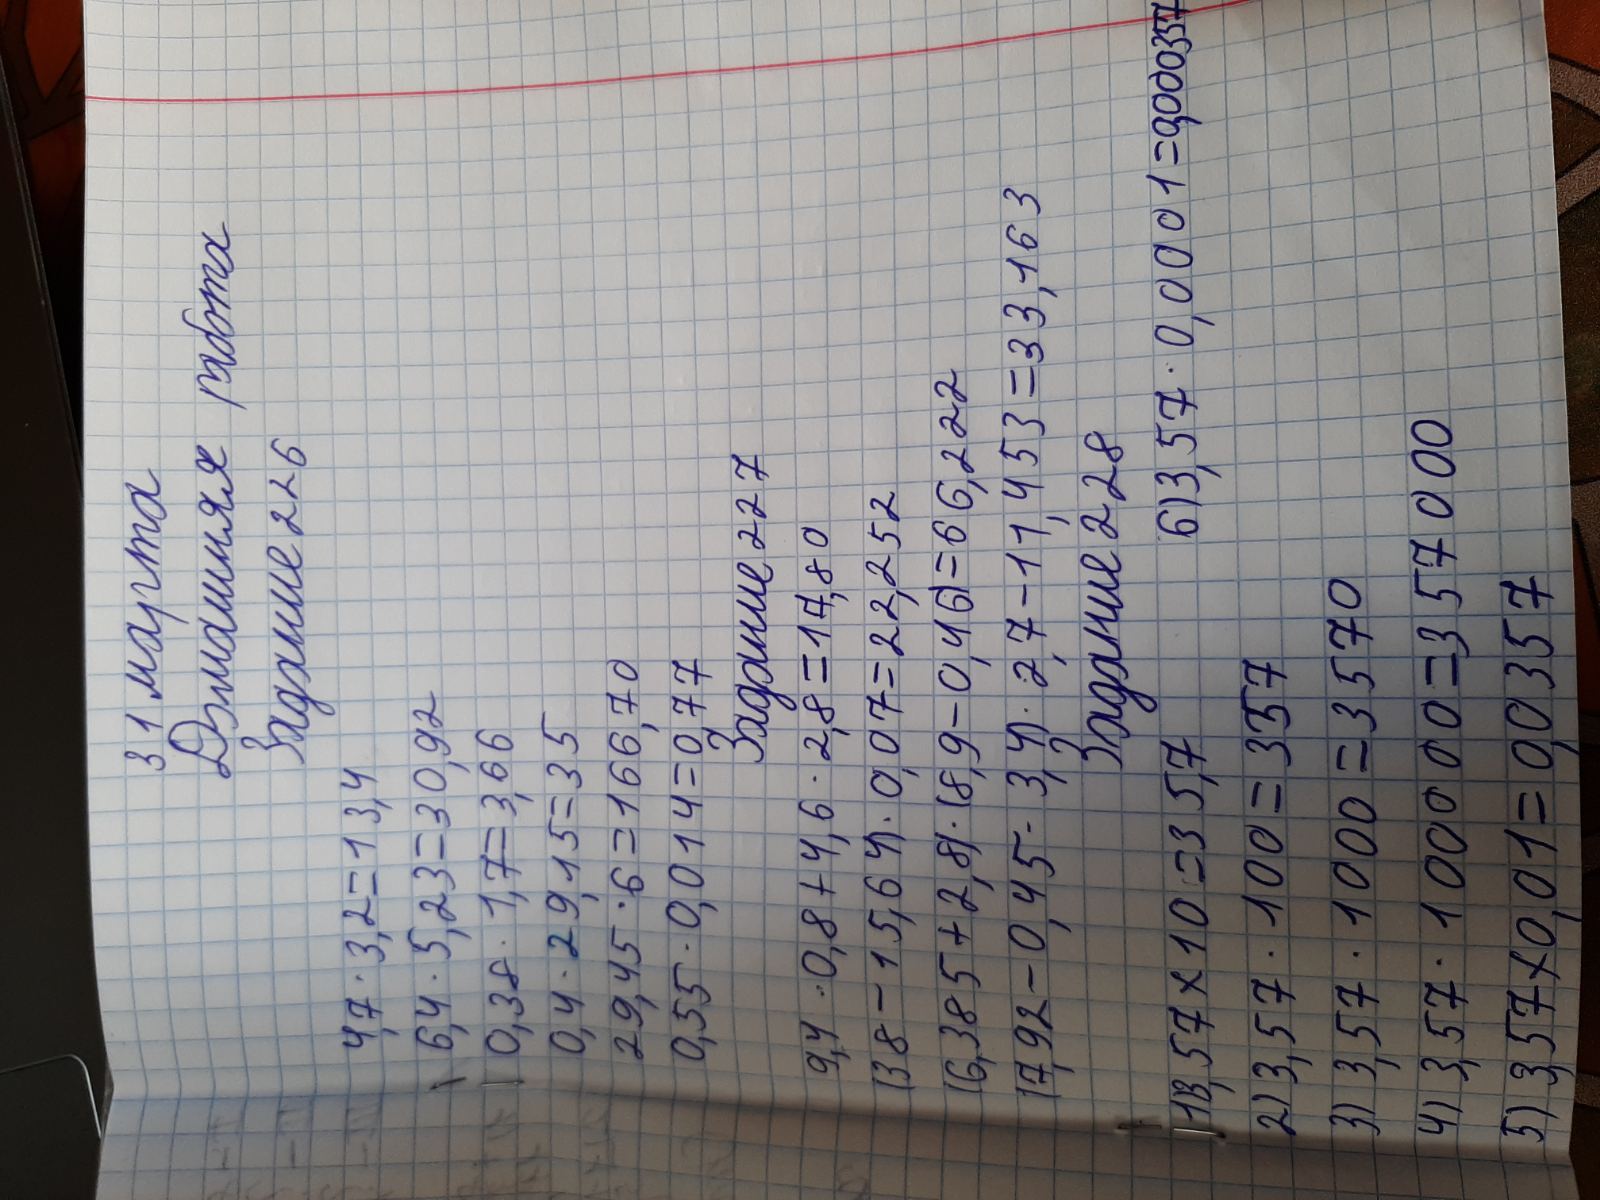 31 марта
Домашняя работа
Задание 226
4,7 · 3,2 = 13,4
6,4 · 5,23 = 30,92
0,38 · 1,7 = 3,66
0,4 · 29,15 = 35
29,45 · 6 = 166,70
0,55 · 0,014 = 0,77
Задание 227
9,4 · 0,8 + 4,6 · 2,8 = 17,80
(38 - 15,64) · 0,07 = 22,252
(6,385 + 2,8) · (8,9 - 0,46) = 66,222
(7,92 - 0,45 · 3,4) · 2,7 - 11,453 = 33,163
Задание 228
1) 3,57 × 10 = 35,7
6) 3,57 · 0,0001 = 0,000357
2) 3,57 · 100 = 357
3) 3,57 · 1000 = 3570
4) 3,57 · 100000 = 357000
5) 3,57 × 0,01 = 0,0357